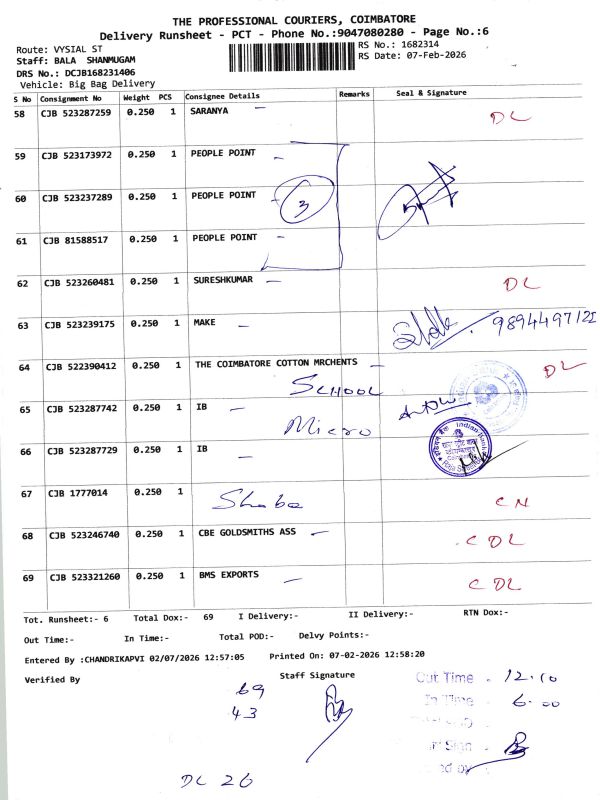 THE PROFESSIONAL COURIERS, COIMBATORE
Delivery Runsheet - PCT - Phone No.:9047080280 - Page No.:6
Route: VYSIAL ST
RS No.: 1682314
Staff: BALA SHANMUGAM
RS Date: 07-Feb-2026
DRS No.: DCJB168231406
Vehicle: Big Bag Delivery
S No Consignment No Weight PCS Consignee Details Remarks Seal & Signature
58 CJB 523287259 0.250 1 SARANYA - DL
59 CJB 523173972 0.250 1 PEOPLE POINT -
60 CJB 523237289 0.250 1 PEOPLE POINT - 3
61 CJB 81588517 0.250 1 PEOPLE POINT -
62 CJB 523260481 0.250 1 SURESHKUMAR - DL
63 CJB 523239175 0.250 1 MAKE - 9894497122
64 CJB 522390412 0.250 1 THE COIMBATORE COTTON MRCHENTS - DL
SCHOOL
65 CJB 523287742 0.250 1 IB -
Micro
66 CJB 523287729 0.250 1 IB - Indian Bank
67 CJB 1777014 0.250 1 Shoba CN
68 CJB 523246740 0.250 1 CBE GOLDSMITHS ASS - CDL
69 CJB 523321260 0.250 1 BMS EXPORTS - CDL
Tot. Runsheet:- 6 Total Dox:- 69 I Delivery:- II Delivery:- RTN Dox:-
Out Time:- In Time:- Total POD:- Delvy Points:-
Entered By :CHANDRIKAPVI 02/07/2026 12:57:05 Printed On: 07-02-2026 12:58:20
Verified By Staff Signature
Out Time . 12.10
69
In Time . 6.00
43
DL 26